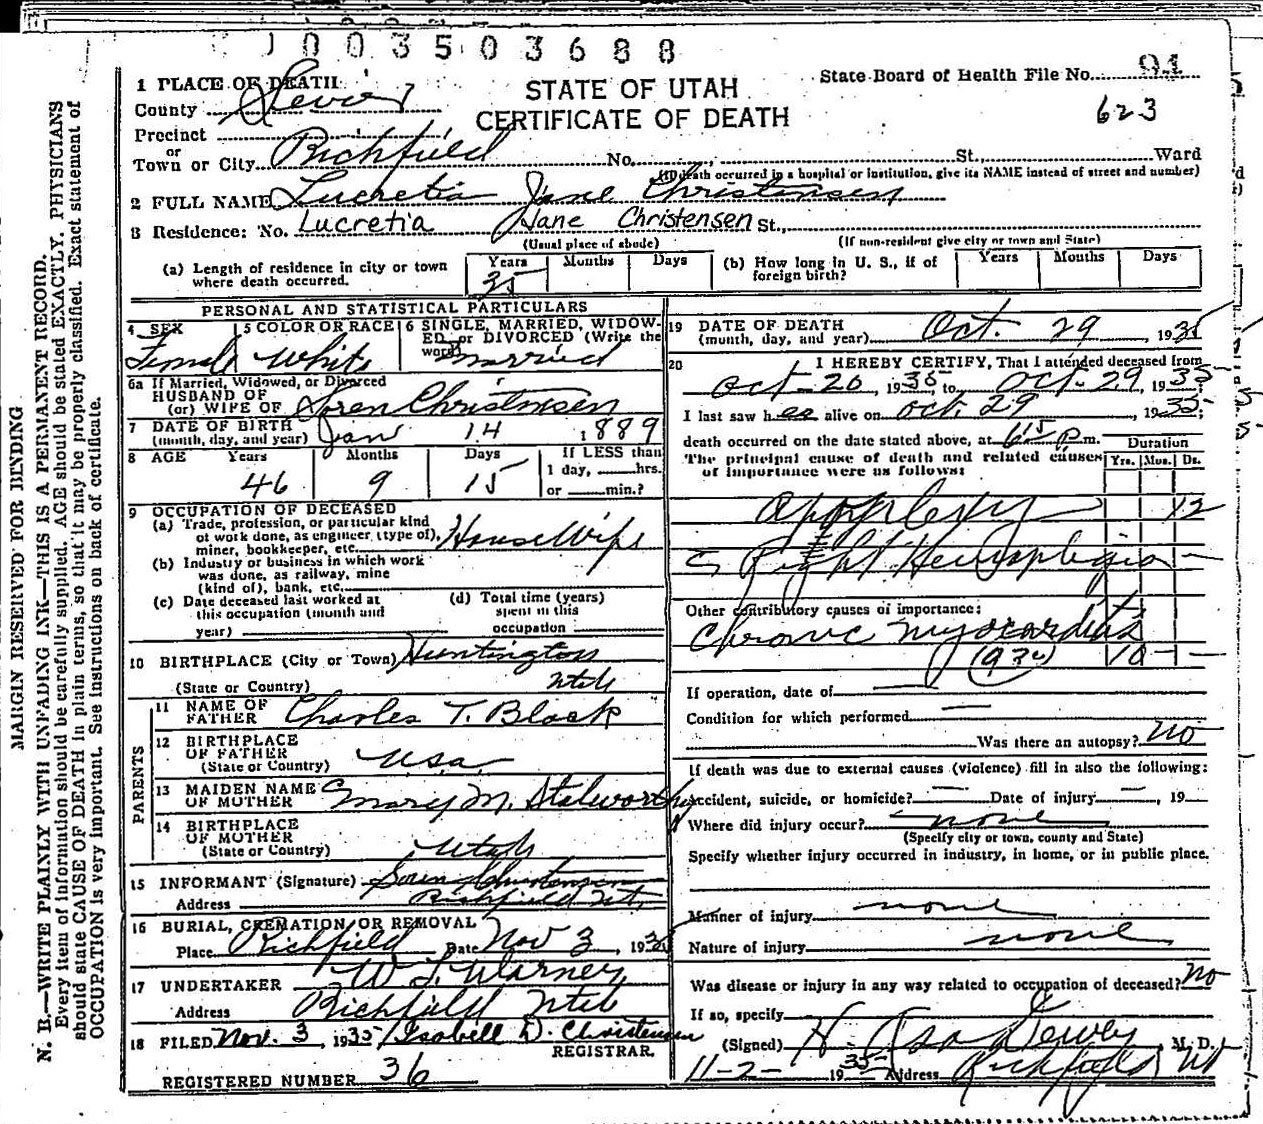 1003503688
STATE OF UTAH
CERTIFICATE OF DEATH
State Board of Health File No. 91
623
1 PLACE OF DEATH
County Sevier
Precinct
or
Town or City Richfield No. St., Ward
(If death occurred in a hospital or institution, give its NAME instead of street and number)
2 FULL NAME Lucretia Jane Christensen
3 Residence: No. Lucretia Jane Christensen St.,
(Usual place of abode) (If non-resident give city or town and State)
(a) Length of residence in city or town where death occurred. Years 35 Months Days
(b) How long in U. S., if of foreign birth? Years Months Days
PERSONAL AND STATISTICAL PARTICULARS
4 SEX Female
5 COLOR OR RACE White
6 SINGLE, MARRIED, WIDOWED, or DIVORCED (Write the word) Married
6a If Married, Widowed, or Divorced
HUSBAND OF
(or) WIFE OF Soren Christensen
7 DATE OF BIRTH
(month, day, and year) Jan 14 1889
8 AGE Years 46 Months 9 Days 15 If LESS than
1 day, hrs.
or min.?
9 OCCUPATION OF DECEASED
(a) Trade, profession, or particular kind
of work done, as engineer (type of),
miner, bookkeeper, etc. House Wife
(b) Industry or business in which work
was done, as railway, mine
(kind of), bank, etc.
(c) Date deceased last worked at
this occupation (month and
year)
(d) Total time (years)
spent in this
occupation
10 BIRTHPLACE (City or Town) Huntington
(State or Country) Utah
PARENTS
11 NAME OF
FATHER Charles T. Black
12 BIRTHPLACE
OF FATHER
(State or Country) U.S.A.
13 MAIDEN NAME
OF MOTHER Mary M. Stalworthy
14 BIRTHPLACE
OF MOTHER
(State or Country) Utah
15 INFORMANT (Signature) Soren Christensen
Address Richfield Ut.
16 BURIAL, CREMATION OR REMOVAL
Place Richfield Date Nov 3, 1935
17 UNDERTAKER W. L. Warner
Address Richfield Utah
18 FILED Nov. 3, 1935 Isabell D. Christensen
REGISTRAR.
REGISTERED NUMBER 36
19 DATE OF DEATH
(month, day, and year) Oct. 29 1935
20 I HEREBY CERTIFY, That I attended deceased from
Oct-20, 1935 to Oct-29, 1935;
I last saw her alive on Oct. 29, 1935;
death occurred on the date stated above, at 6:15 P.m.
The principal cause of death and related causes
of importance were as follows:
Duration
Yrs. Mos. Ds.
apoplexy 12
Right Hemiplegia —
Other contributory causes of importance:
Chronic Myocarditis
10 — —
If operation, date of —
Condition for which performed —
Was there an autopsy? No
If death was due to external causes (violence) fill in also the following:
Accident, suicide, or homicide? — Date of injury —, 19
Where did injury occur? none
(Specify city or town, county and State)
Specify whether injury occurred in industry, in home, or in public place.
Manner of injury none
Nature of injury none
Was disease or injury in any way related to occupation of deceased? No
If so, specify
(Signed) H. Asa Dewey, M. D.
11-2- 1935 Address Richfield Ut
MARGIN RESERVED FOR BINDING
N. B.—WRITE PLAINLY WITH UNFADING INK—THIS IS A PERMANENT RECORD.
Every item of information should be carefully supplied. AGE should be stated EXACTLY. PHYSICIANS
should state CAUSE OF DEATH in plain terms, so that it may be properly classified. Exact statement of
OCCUPATION is very important. See instructions on back of certificate.